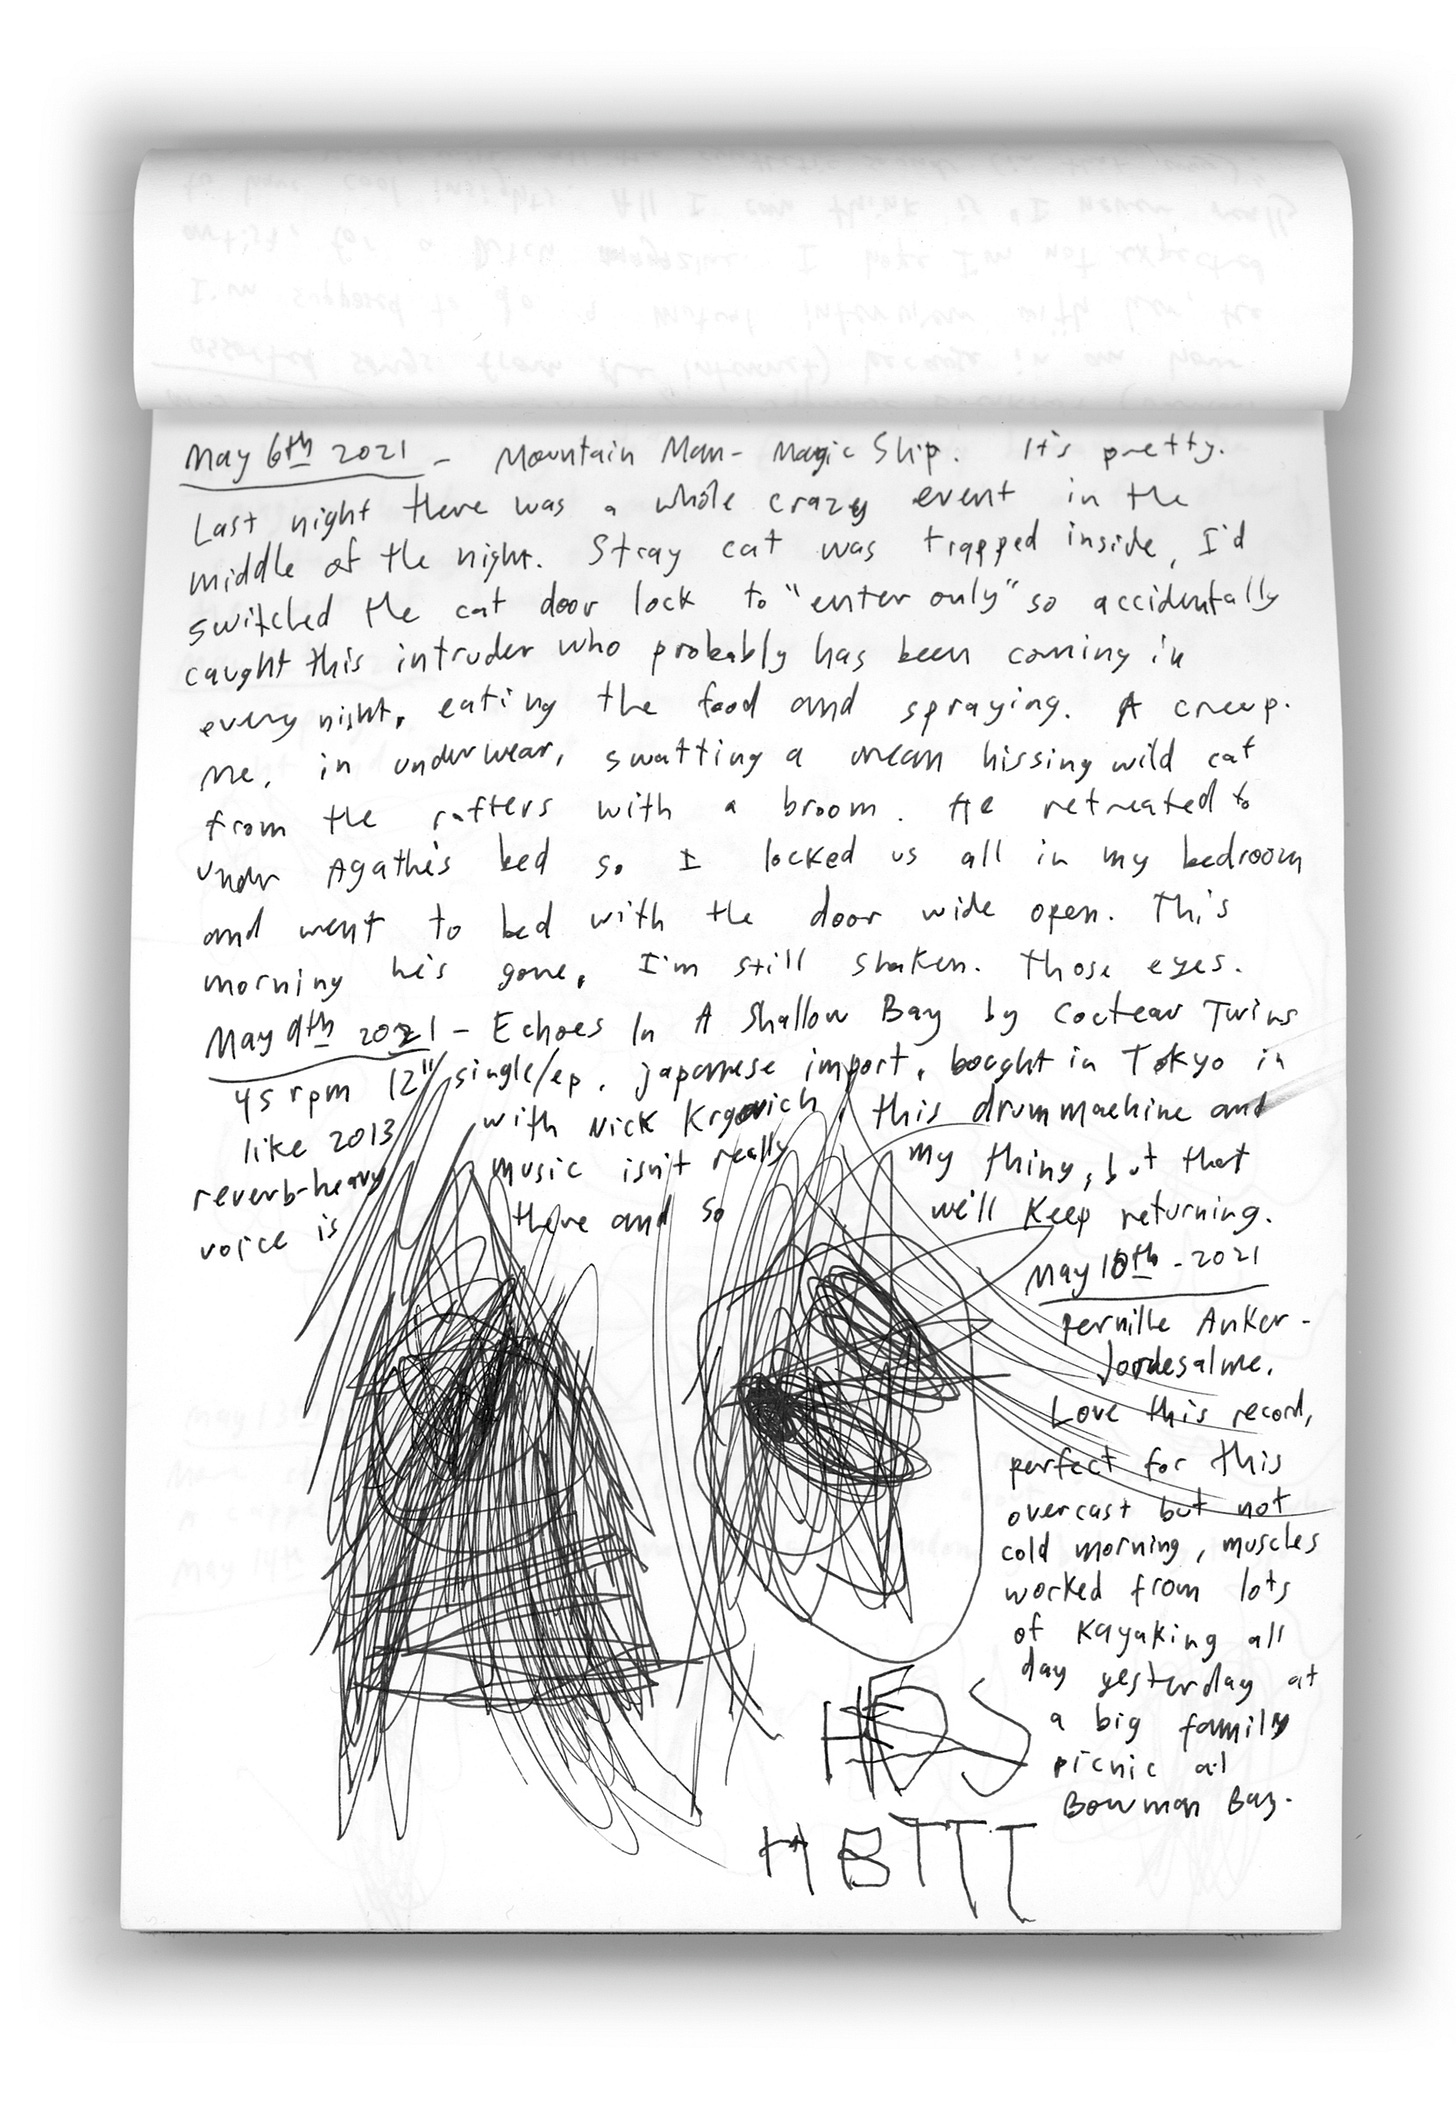 May 6th 2021 - Mountain Man - Magic Ship. It's pretty.
Last night there was a whole crazy event in the
middle of the night. Stray cat was trapped inside, I'd
switched the cat door lock to "enter only" so accidentally
caught this intruder who probably has been coming in
every night, eating the food and spraying. A creep.
Me, in underwear, swatting a mean hissing wild cat
from the rafters with a broom. He retreated to
under Agathe's bed so I locked us all in my bedroom
and went to bed with the door wide open. This
morning he's gone, I'm still shaken. Those eyes.
May 9th 2021 - Echoes In A Shallow Bay by Cocteau Twins
45 rpm 12" single/ep. japanese import, bought in Tokyo in
like 2013 with Nick Krgovich, this drum machine and
reverb-heavy music isn't really my thing, but that
voice is there and so we'll keep returning.
May 10th - 2021
Pernille Anker -
Jordesalme.
Love this record,
perfect for this
overcast but not
cold morning, muscles
worked from lots
of kayaking all
day yesterday at
a big family
picnic at
Bowman Bay.
HBTTT